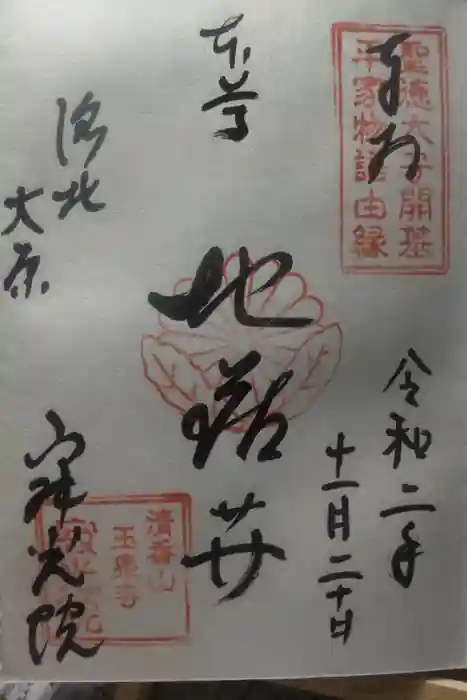 奉拝
聖徳太子開基
平家物語由縁
令和二年
十一月二十日
本尊
地蔵廾
洛北
大原
寂光院
清香山
玉泉寺